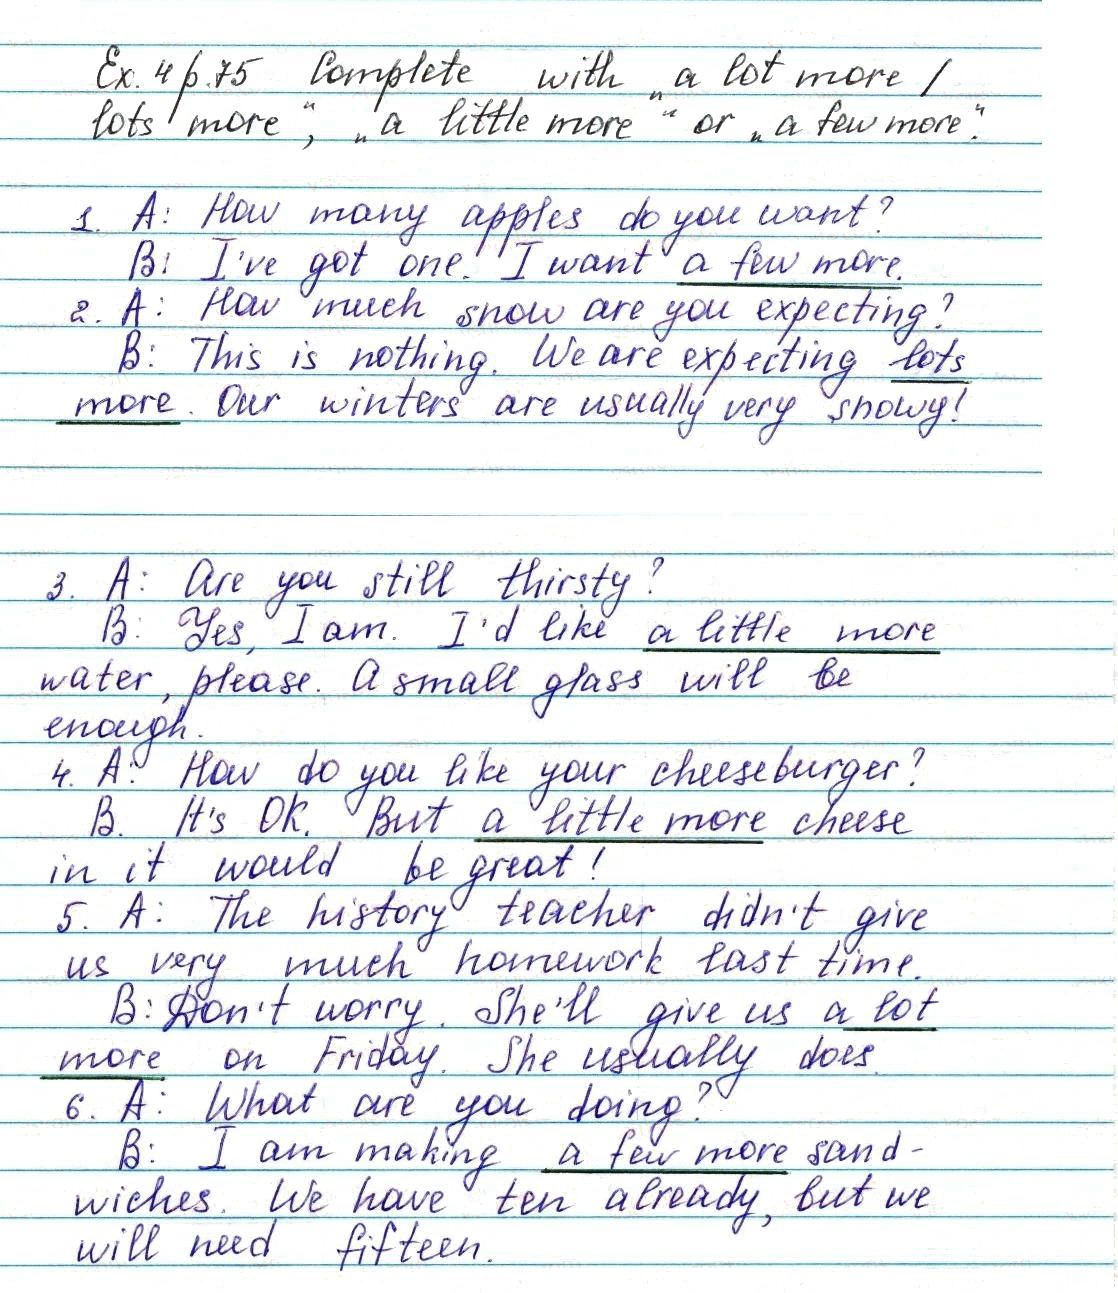 Ex. 4 p. 75 Complete with „a lot more /
lots more“, „a little more“ or „a few more“.
1. A: How many apples do you want?
B: I've got one. I want a few more.
2. A: How much snow are you expecting?
B: This is nothing. We are expecting lots
more. Our winters are usually very snowy!
3. A: Are you still thirsty?
B: Yes, I am. I'd like a little more
water, please. A small glass will be
enough.
4. A: How do you like your cheeseburger?
B. It's OK. But a little more cheese
in it would be great!
5. A: The history teacher didn't give
us very much homework last time.
B: Don't worry. She'll give us a lot
more on Friday. She usually does.
6. A: What are you doing?
B: I am making a few more sand-
wiches. We have ten already, but we
will need fifteen.